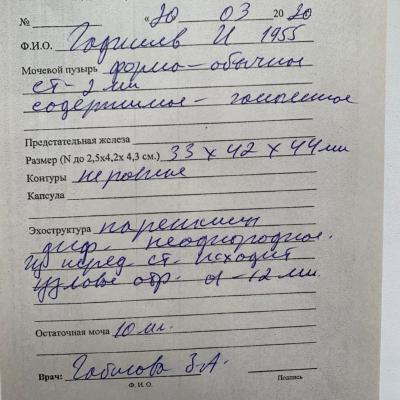 № «20 03 2020
Ф.И.О. И 1955
Мочевой пузырь форма – обычное
ст – 2 мм
содержимое – гомогенное
Предстательная железа
Размер (N до 2,5х4,2х 4,3 см.) 33 х 42 х 44 мм
Контуры неровные
Капсула
Эхоструктура паренхимы
диф. неоднородное.
Из перед. ст. исходит
узловое обр. d – 12 мм.
Остаточная моча 10 мл.
Врач: Габилова З.А.
Ф. И. О. Подпись